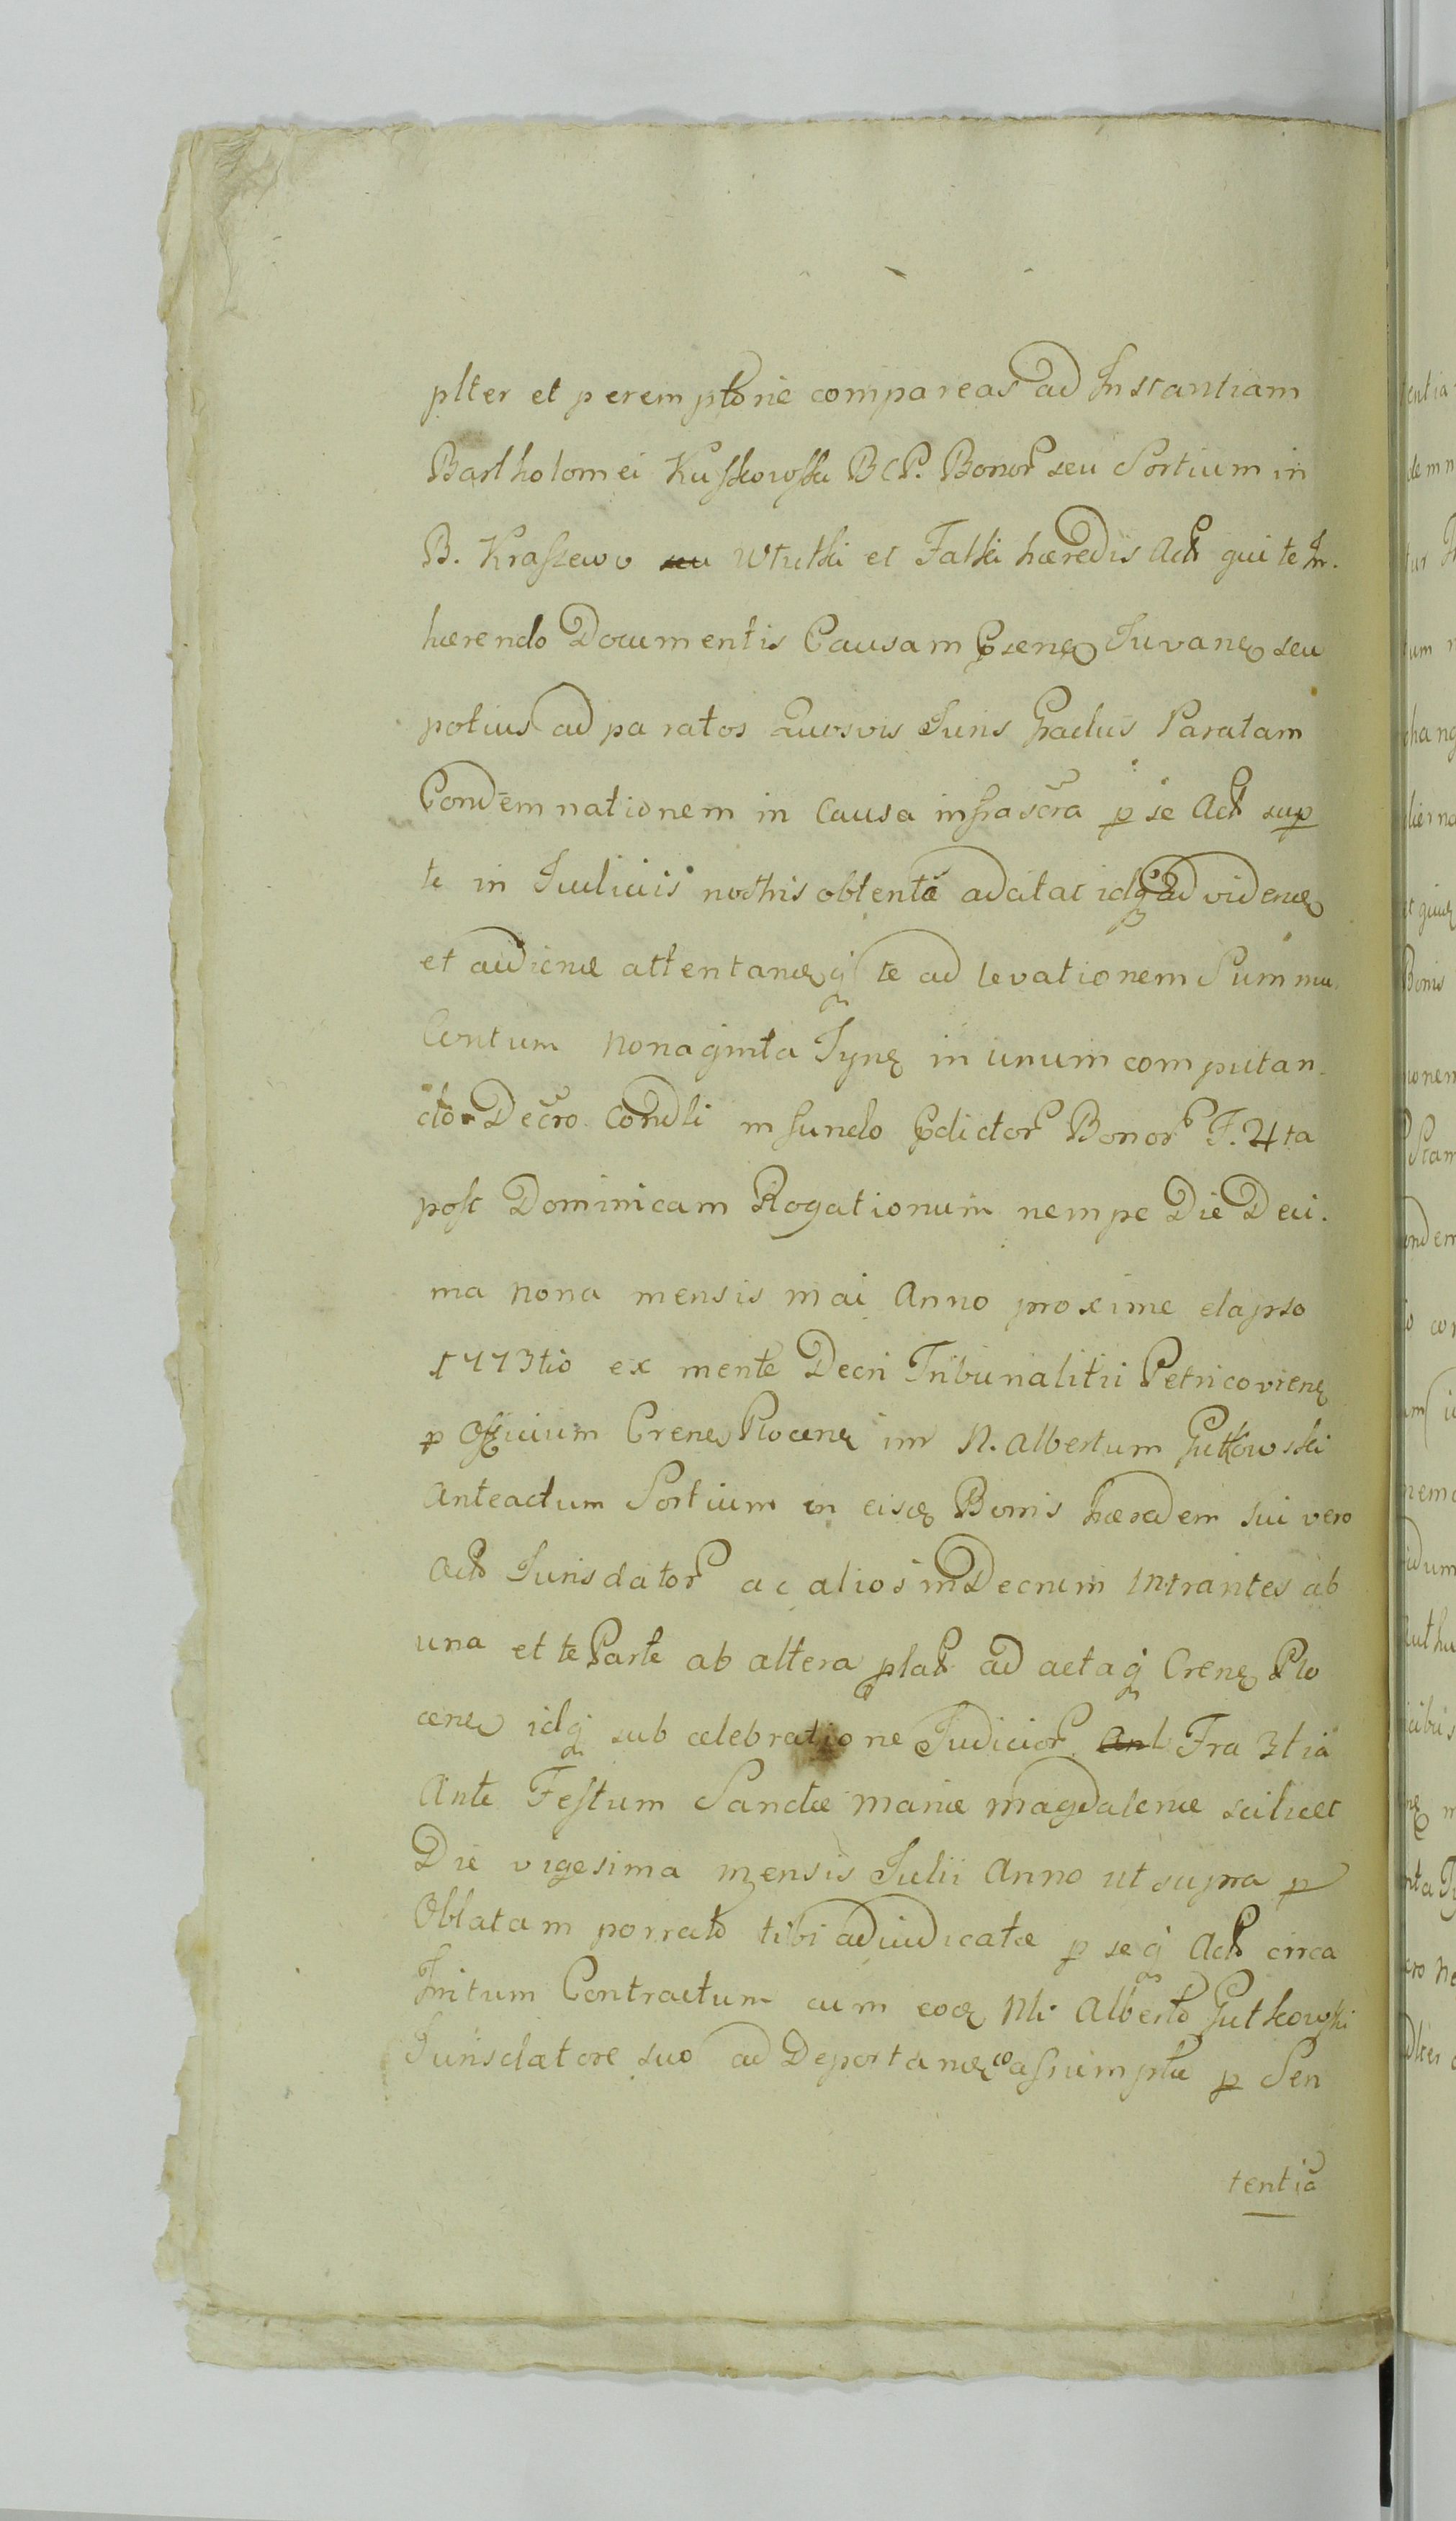 plter et peremptorie compareas ad Instantiam
Bartholomei Kuskowski B C P. Bonor seu Sortium in
B. Kraszewo Wtutki et Falki hæredis Act qui te In-
hærendo Documentis Causam Juvane seu
potius ad paratos Quosvis Juris Gradus Paratam
Condemnationem in Causa infrascra p se Act sup
te in Judiciis nostris obtentã adcitat idq ad videnđ
et audienđ attentanđ q te ad levationem Summæ
Centum nonaginta Tynf in unum computan-
do Decro Condli in fundo pdictor Bonor F. 4ta
post Dominicam Rogationum nempe Die Deci-
ma nona mensis mai Anno proxime elapso
1773tio ex mente Decri Tribunalitii Petricovien
p Officium Crense Plocen int N. Albertum Gutkowski
Anteactum Sortium in eisđ Bonis hæredem sui vero
Act Jurisdator ac alios in Decrum intrantes ab
una et te Parte ab altera plat ad actaq Cren Plo
cen idq sub celebratione Judicior Fra 3tia
Ante Festum Sanctæ mariæ magdalenæ scilicet
Die vigesima mensis Julii Anno ut supra p
Oblatam porrato tibi adiudicatæ p seq Act circa
Initum Contractum cum eođ Nli Alberto Gutkowski
Jurisdatore suo ad Deportanđ assumptæ p Sen
tentiã